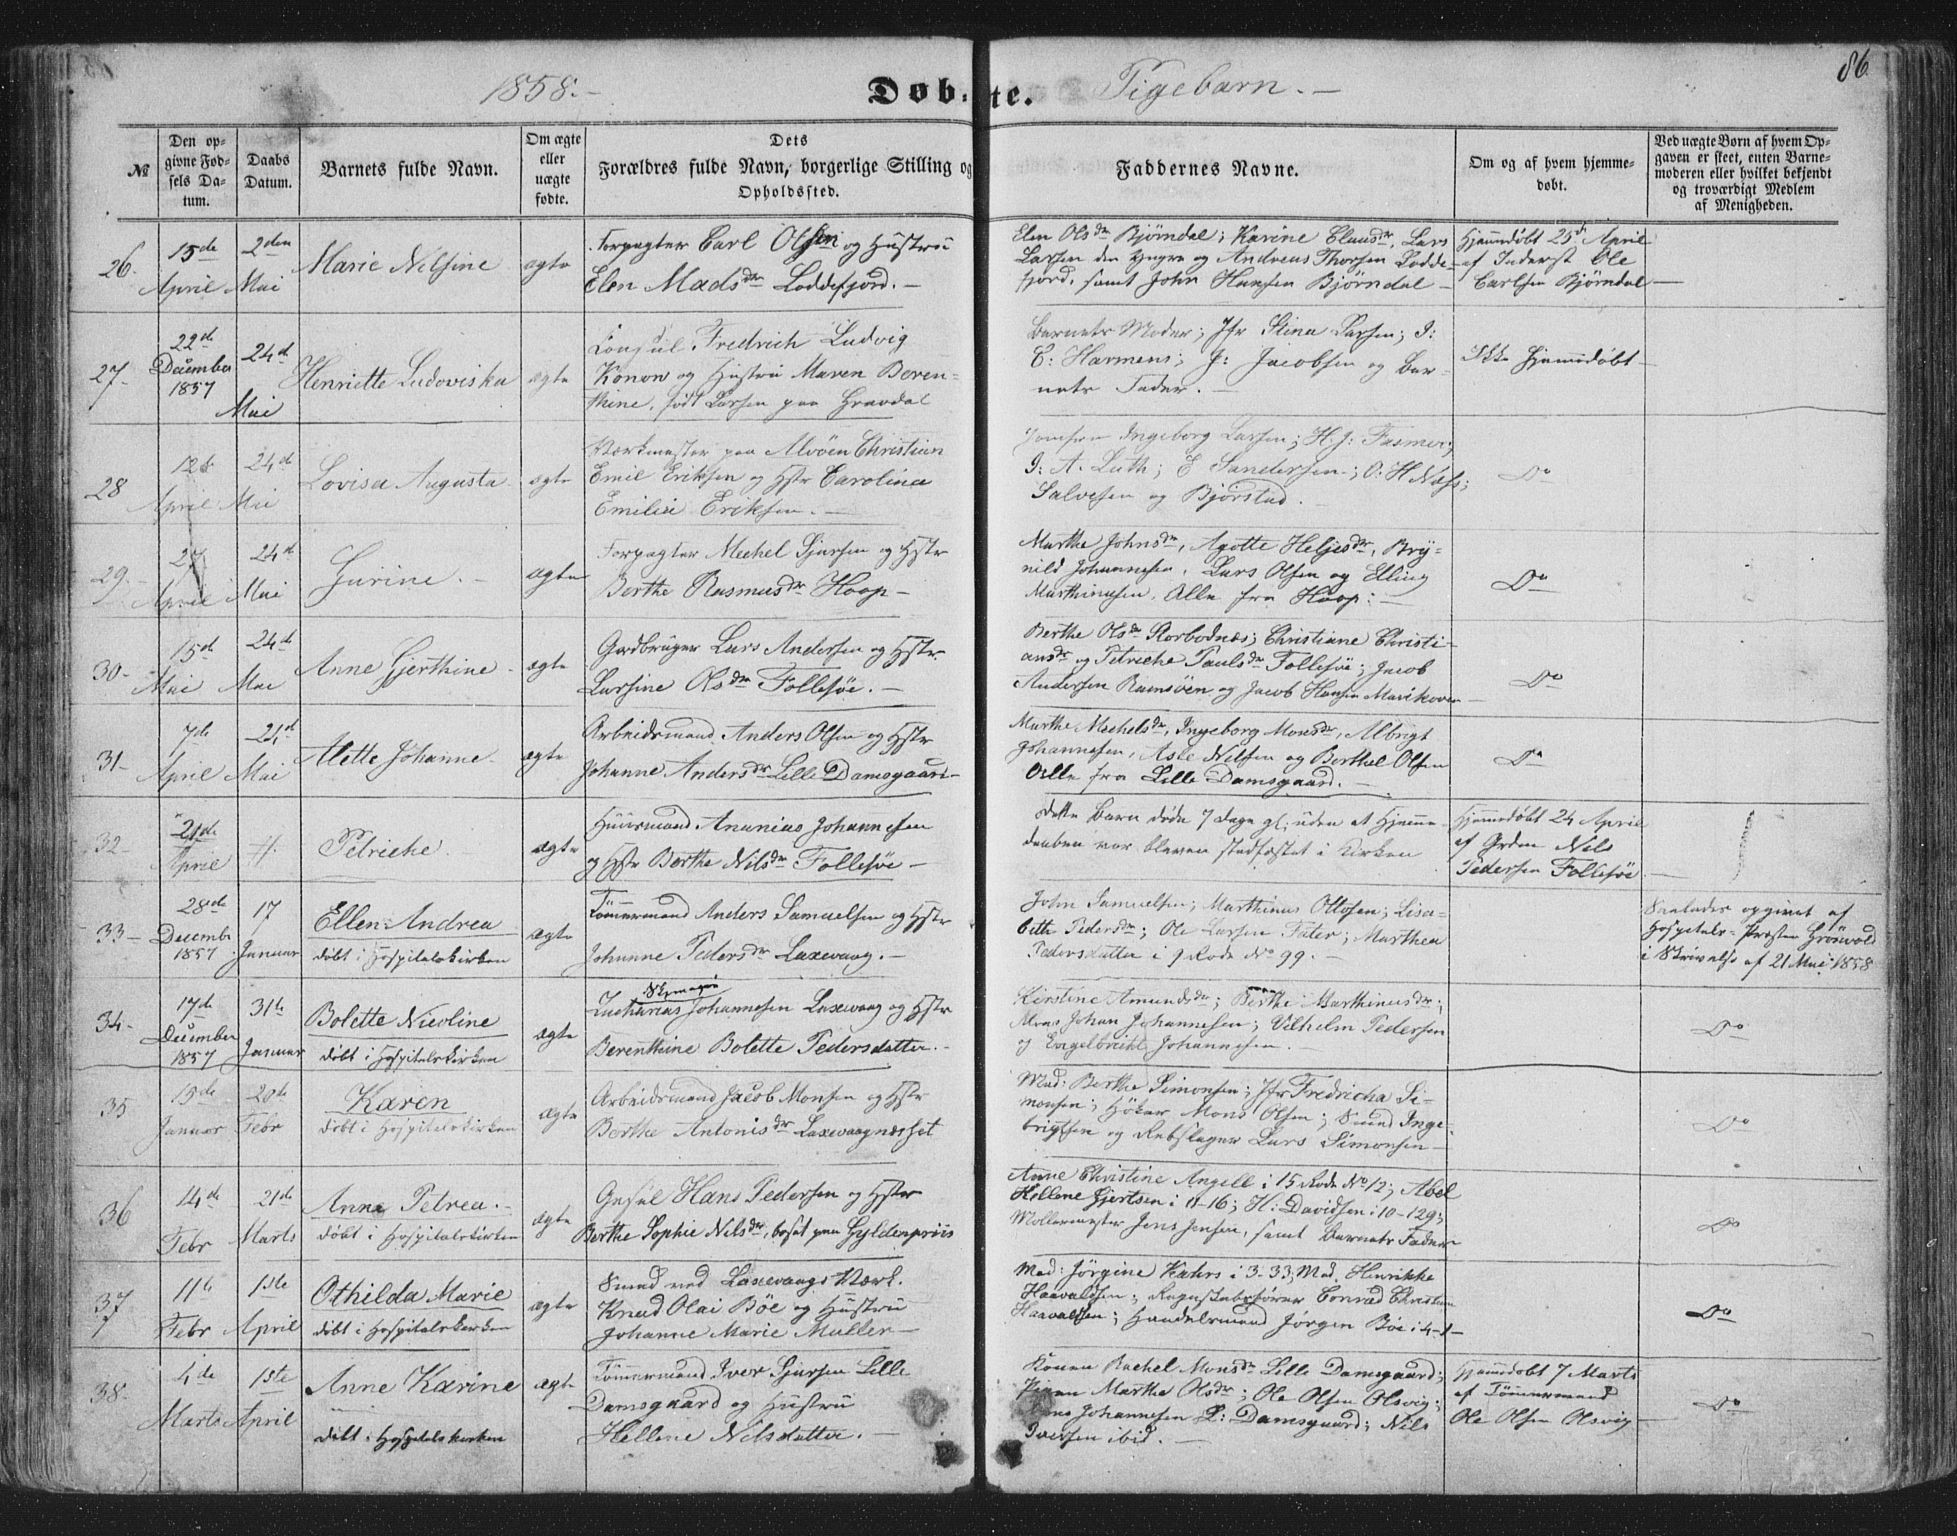 1858.-
Døbte.
Pigebarn.-
86
№
Den opgivne Fødsels Datum.
Daabs Datum.
Barnets fulde Navn.
Om ægte eller uægte fødte.
Dets Forældres fulde Navn, borgerlige Stilling og Opholdssted.
Faddernes Navne.
Om og af hvem hjemmedøbt.
Ved uægte Børn af hvem Opgaven er skeet, enten Barnemoderen eller hvilket bekjendt og troværdigt Medlem af Menigheden.
26.
15de April
2den Mai
Marie Nilsine
ægte
Forpagter Carl Olsen og Hustru
Elen Madsdr Loddefjord.-
Elen Olsdr Bjørndal; Karine Clausdr, Lars
Larsen den Yngre og Andreas Thorsen Lodde-
fjord, samt John Hansen Bjørndal
Hjemmdøbt 25d April
af Inderst Ole
Carlsen Bjørndal
27.
22d December 1857
24d Mai
Henriette Ludoviska
ægte
Consul Fredrich Ludvig
Konow og Hustru Maren Beren-
thine, født Larsen paa Gravdal
Barnets Moder; Jfr Stina Larsen; I:
C: Harmens; J: Jacobsen og Bar-
nets Fader.-
Ikke Hjemmdøbt
28
12t April
24d Mai
Lovisa Augusta
ægte
Værkmester paa Alvøen Christian
Emil Eriksen og Hstr Carolina
Emilie Eriksen.-
Jomfru Ingeborg Larsen; H. J: Fasmer;
I: A. Luth; E Sandersen; O: H Næss;
Salvesen og Bjørstad.
Do
29.
27 April
24d Mai
Gurine.-
ægte
Forpagter Mechel Sjursen og Hstr
Berthe Rasmusdr Hoop-
Marthe Johnsdr, Agotte Heljesdr, Bry-
nild Johannesen, Lars Olsen og Elling
Marthinusen, Alle fra Hoop:-
Do
30-
15d Mai
24d Mai
Anne Gjerthine
ægte
Gardbruger Lars Andersen og Hstr.
Larsine Olsdr Follesøe.-
Berthe Olsdr Storbodnæs; Christiane Christi-
ansdr og Petriche Paulsdr Follesøe; Jacob
Andersen Ramsøen og Jacob Hansen Marikoven
Do
31-
7de April
24d Mai
Alette Johanne
ægte
Arbeidsmand Anders Olsen og Hstr
Johanne Andersdr Lille Damsgaard-
Marthe Mechelsdr, Ingeborg Monsdr, Albrigt
Johannesen, Asle Nilsen og Berthel Olsen
Alle fra Lille Damsgaard.-
Do
32-
21de April
Petriche
ægte
Huusmand Ananias Johannesen
og Hstr Berthe Nilsdr Follesøe-
Dette Barn døde 7 Dage gl, uden at Hjemme-
daaben var bleven stadfæstet i Kirken
Hjemmdøbt 24 April
af Grdm Nils
Pedersen Follesøe
33-
28de Decembr 1857
17 Januar
Ellen Andrea
døbt i Hospitalskirken
ægte
Tømmermand Anders Samuelsen og Hstr
Johanne Pedersdr Laxevaag.-
John Samuelsen; Marthinus Ottosen; Lisa-
beth Pedersdr; Ole Larsen Sæter; Marthea
Pedersdatter i 9 Rode No 99.-
Saaledes opgivet af
Hospitals-Præsten Grønvold
i Skrivelse af 21 Mai 1858
34-
17de December 1857
31te Januar
Bolette Nicoline
døbt i Hospitalskirken
ægte
Zacharias Johannesen Laxevaag og Hstr
Berenthine Bolette Pedersdatter.-
Kirstine Amundsdr; Berthe Marthinusdr;
Johan Johannesen; Vilhelm Pedersen
og Engelbrekt Johannesen.-
Do
35
19de Januar
20de Febr
Karen
døbt i Hospitalskirken
ægte
Arbeidsmand Jacob Monsen og Hstr
Berthe Antonisdr Laxevaagnæsset
Mad: Berthe Simonsen; Jfr Fredricha Si-
monsen; Høker Mons Olsen; Smed Inge-
brigtsen og Rebslager Lars Simonsen-
Do
36
14de Febr
21de Marts
Anna Petrea.-
døbt i Hospitalskirken
ægte
Gesel Hans Pedersen og Hstr
Berthe Sophie Nilsdr, bosat paa Gyldenpriis
Anne Christine Angell i 15 Rode No 12; Abel
Hellene Gjertsen i 11-16; H: Davidsen i 10-129;
Møllermester Jens Jensen, samt Barnets Fader
Do
37
11te Febr
1ste April
Othilda Marie
døbt i Hospitalskirken
ægte
Smed ved Laxevaags Værk.
Knud Olai Bøe og Hustru
Johanne Marie Muller-
Mad: Jørgine Kahrs i 3-33, Mad. Henrikke
Haavaldsen; Regnskabsfører Conrad Christian
Haavaldsen; Handelsmand Jørgen Bøe i 4-1-
Do
38-
4de Marts
1ste April
Anne Karine
døbt i Hospitalskirken
ægte
Tømmermand Iver Sjursen Lille
Damsgaard og Hustru
Hellene Nilsdatter.-
Konen Rachel Monsdr Lille Damsgaard;
Pigen Marthe Olsdr; Ole Olsen Olsvig;
Johannesen L: Damsgaard; Nils
Iversen ibid.-
Hjemmdøbt 7 Marts
af Tømmermand
Ole Olsen Olsvig-
Do